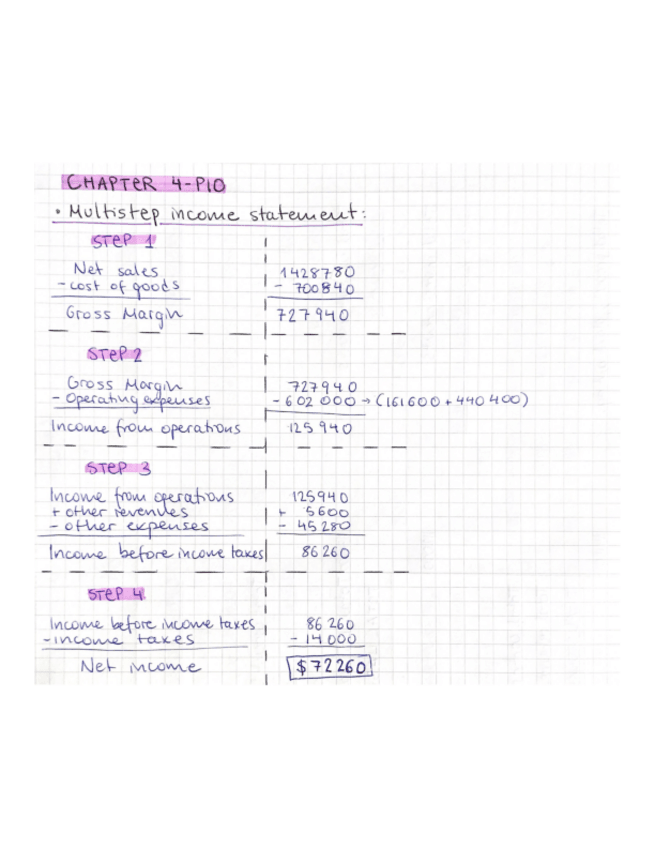 CHAPTER 4-P10
• Multistep income statement:
STEP 1
Net sales 1428780
- cost of goods - 700840
Gross Margin 727940
STEP 2
Gross Margin 727940
- Operating expenses - 602 000 → (161600 + 440 400)
Income from operations 125 940
STEP 3
Income from operations 125940
+ other revenues + 5600
- other expenses - 45280
Income before income taxes 86 260
STEP 4
Income before income taxes 86 260
- income taxes - 14 000
Net income $72260